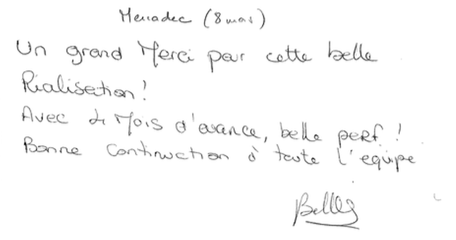 (8 mois)
Un grand Merci pour cette belle
Réalisation!
Avec 2 Mois d'avance, belle perf!
Bonne Continuation à toute l'équipe